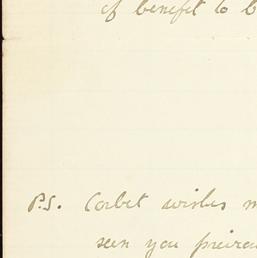 of benefit to
P.S. Corbet wishes
seen you